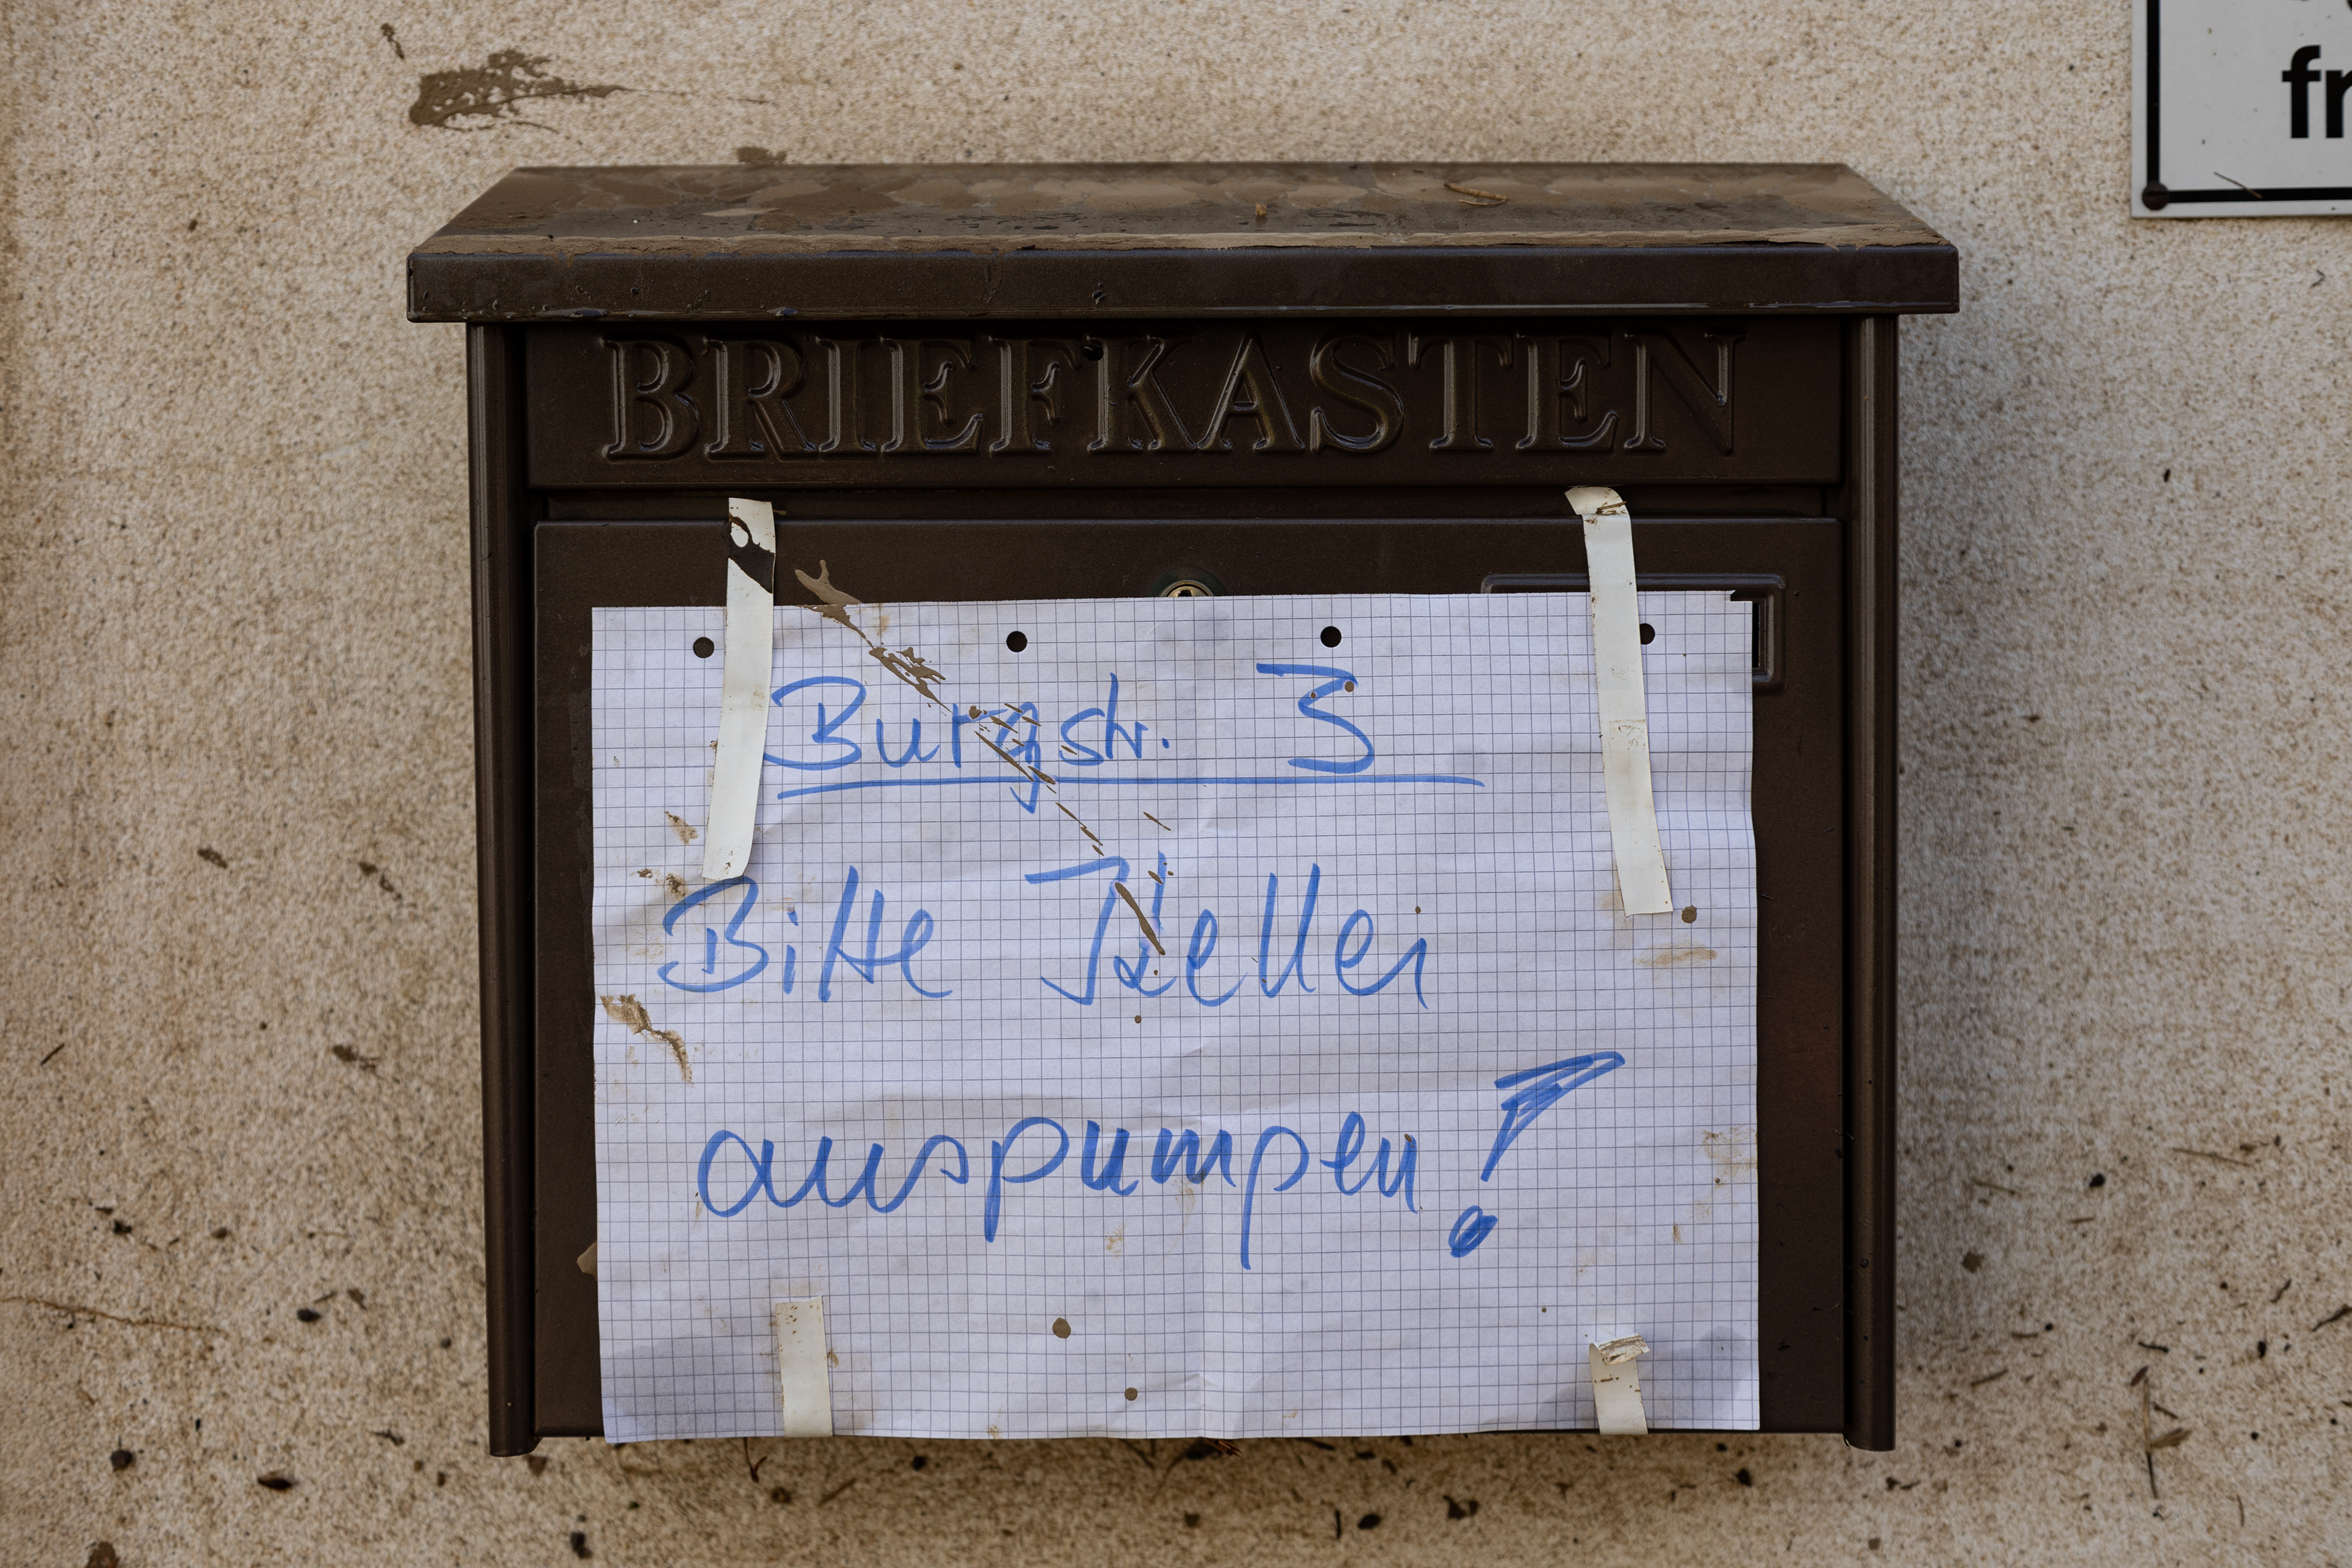 fr
BRIEFKASTEN
Burgstr. 3
Bitte Keller
auspumpen!